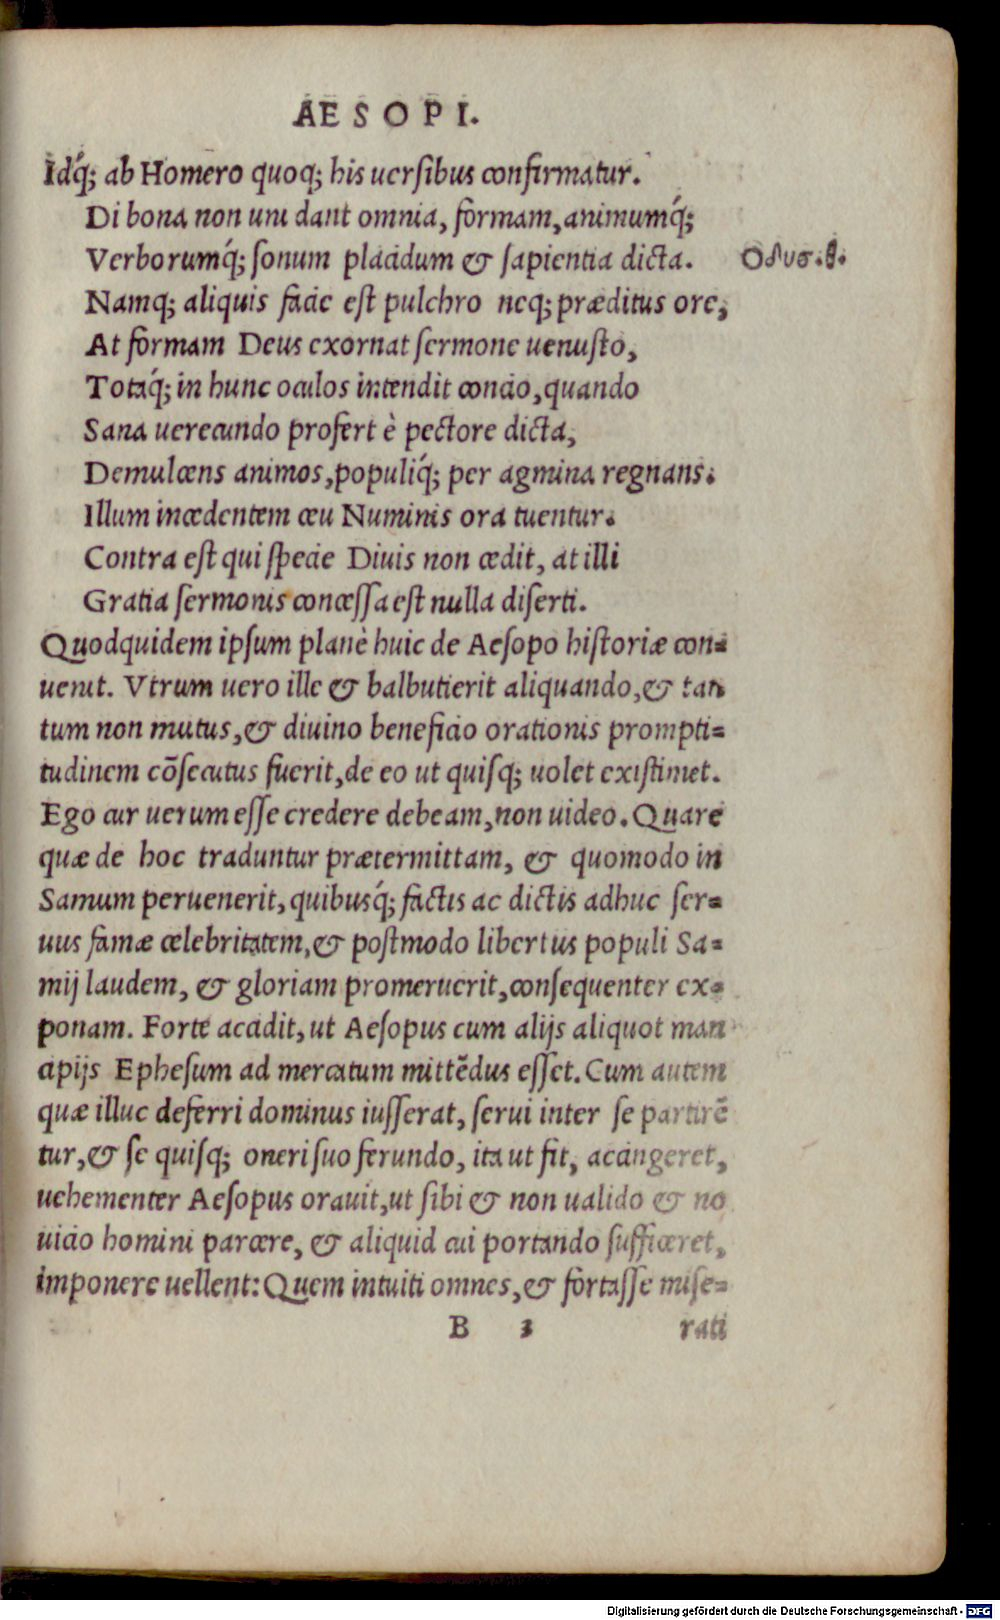 AESOPI.
Idq́; ab Homero quoq; his uersibus confirmatur.
Di bona non uni dant omnia, formam, animumq́;
Verborumq́; sonum placidum & sapientia dicta.
Οδυσ. θ.
Namq; aliquis facie est pulchro neq; præditus ore,
At formam Deus exornat sermone uenusto,
Totaq́; in hunc oculos intendit concio, quando
Sana uerecundo profert è pectore dicta,
Demulcens animos, populiq́; per agmina regnans.
Illum incedentem ceu Numinis ora tuentur.
Contra est qui specie Diuis non cedit, at illi
Gratia sermonis concessa est nulla diserti.
Quodquidem ipsum planè huic de Aesopo historiæ con-
uenit. Vtrum uero ille & balbutierit aliquando, & tan
tum non mutus, & diuino beneficio orationis prompti-
tudinem cõsecutus fuerit, de eo ut quisq; uolet existimet.
Ego cur uerum esse credere debeam, non uideo. Quare
quæ de hoc traduntur prætermittam, & quomodo in
Samum peruenerit, quibusq́; factis ac dictis adhuc ser-
uus famæ celebritatem, & postmodo libertus populi Sa-
mij laudem, & gloriam promeruerit, consequenter ex-
ponam. Forte accidit, ut Aesopus cum alijs aliquot man
cipijs Ephesum ad mercatum mittẽdus esset. Cum autem
quæ illuc deferri dominus iusserat, serui inter se partirẽ
tur, & se quisq; oneri suo ferundo, ita ut fit, accingeret,
uehementer Aesopus orauit, ut sibi & non ualido & no
uicio homini parcere, & aliquid cui portando sufficeret,
imponere uellent: Quem intuiti omnes, & fortasse mise-
B 3 rati
Digitalisierung gefördert durch die Deutsche Forschungsgemeinschaft - DFG